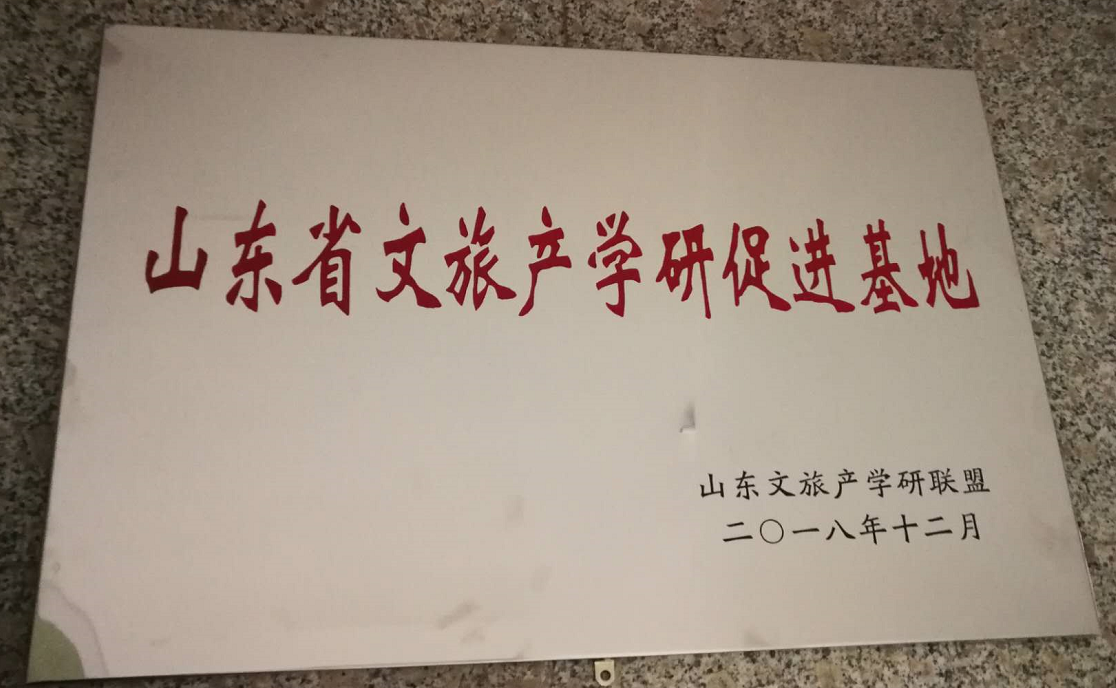 山东省文旅产学研促进基地
山东文旅产学研联盟
二〇一八年十二月